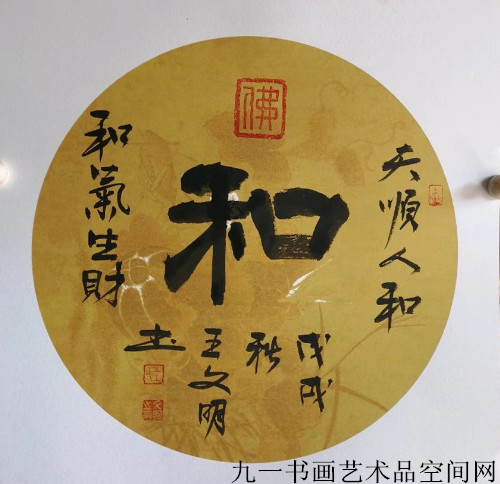 佛
天順人和
和
和氣生財
戊戌
秋
王文明
书
九一书画艺术品空间网